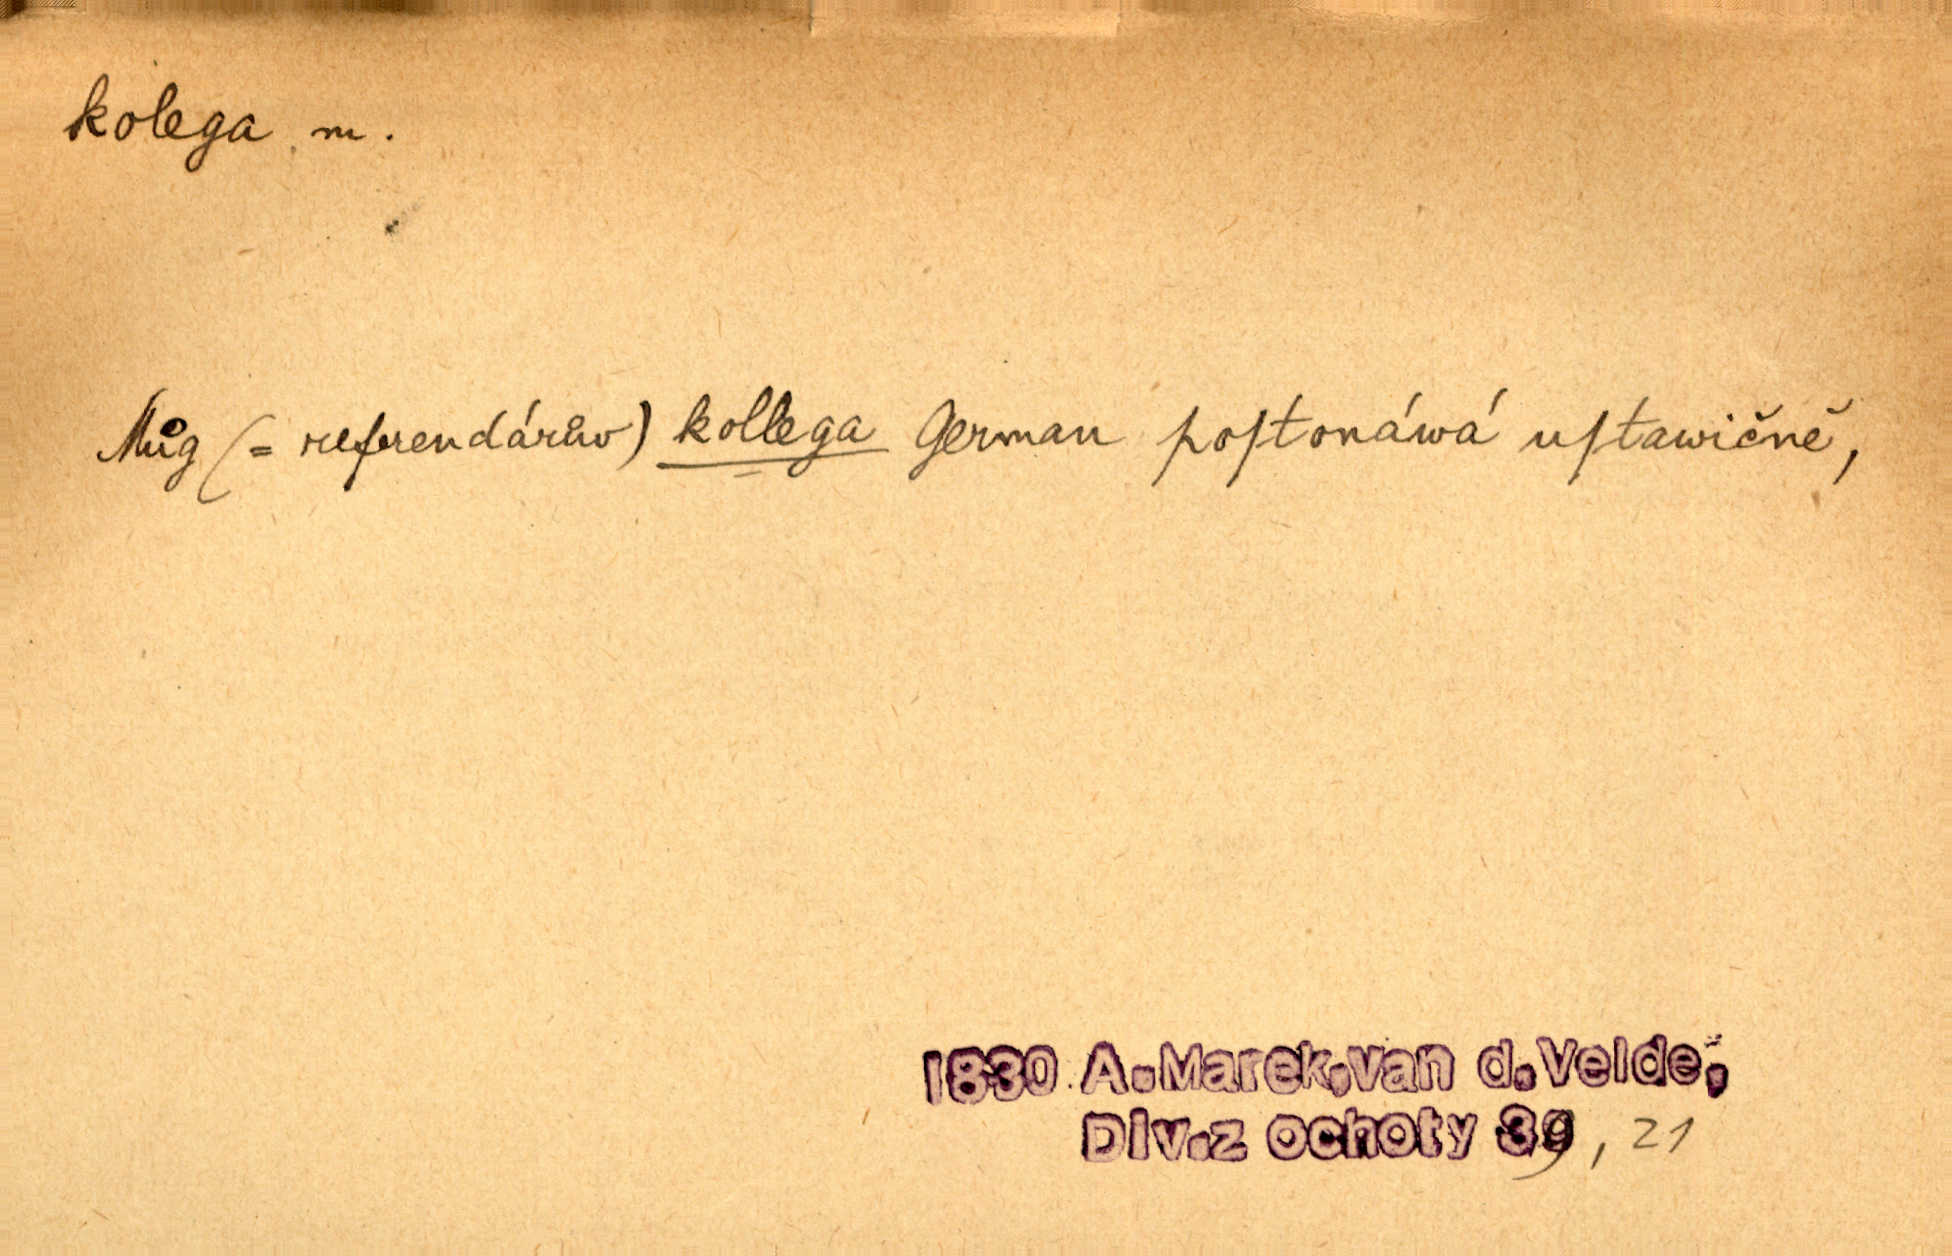 kolega m.
Můg (= referendárůw) kollega German poſtonáwá uſtawičně,
1830 A.Marek,van d.Velde,
Div.z ochoty 39, 21